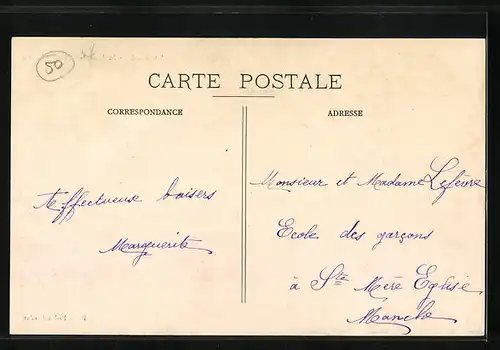 50
CARTE POSTALE
CORRESPONDANCE
ADRESSE
Affectueux baisers
Marguerite
Monsieur et Madame Lefèvre
Ecole des garçons
à Ste Mère Eglise
Manche